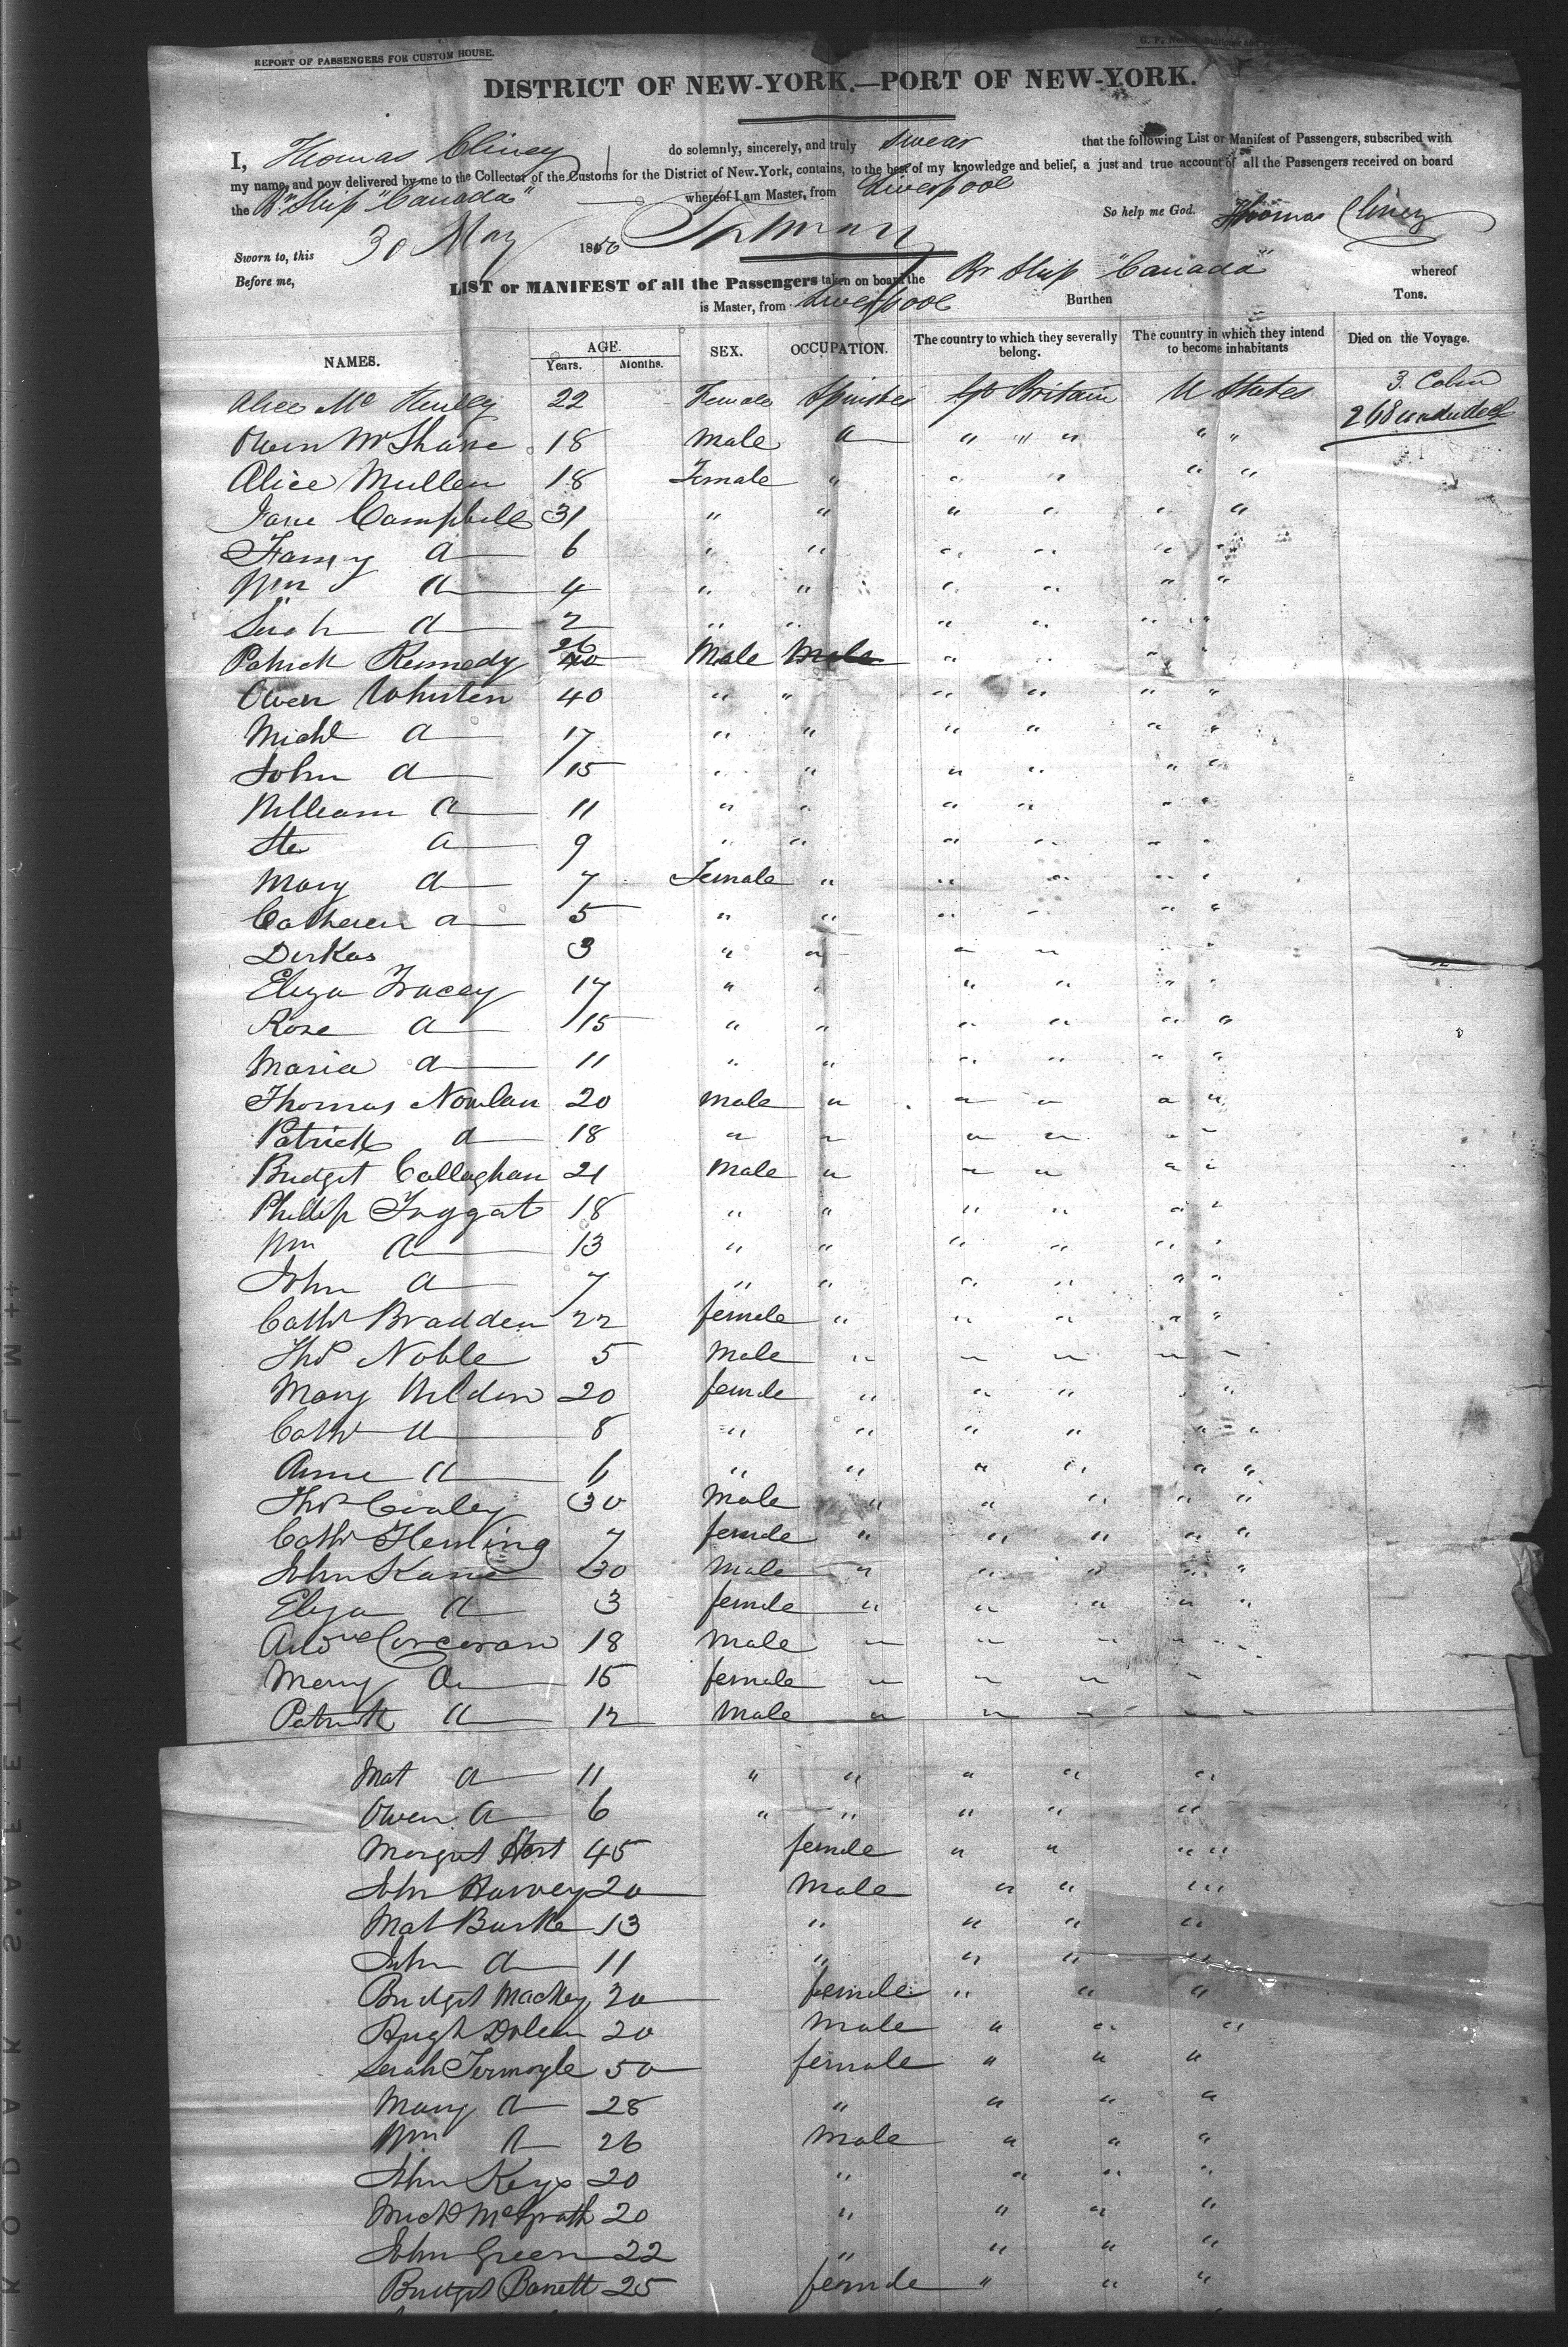 REPORT OF PASSENGERS FOR CUSTOM HOUSE.
DISTRICT OF NEW-YORK.—PORT OF NEW-YORK.
I, Thomas Cliney do solemnly, sincerely, and truly swear that the following List or Manifest of Passengers, subscribed with
my name, and now delivered by me to the Collector of the Customs for the District of New-York, contains, to the best of my knowledge and belief, a just and true account of all the Passengers received on board
the Br Ship "Canada" whereof I am Master, from Liverpool
So help me God. Thomas Cliney
Sworn to, this 30 May 1850
Before me,
LIST or MANIFEST of all the Passengers taken on board the Br Ship "Canada" whereof
is Master, from Liverpool Burthen Tons.
NAMES. AGE. Years. Months. SEX. OCCUPATION. The country to which they severally belong. The country in which they intend to become inhabitants Died on the Voyage.
Alice Mc 22 Female Spinster Gt Britain U States 3. Cabin
268 under deck
Owen McShane 18 Male a " " " " "
Alice Mullen 18 Female " " " " "
Jane Campbell 31 " " " " " "
Fanny a 6 " " " " " "
Wm a 4 " " " " " "
a 2 " " " " " "
Patrick Kennedy 26 40 Male Male " " " "
Owen Whisten 40 " " " " " "
Michl a 17 " " " " " "
John a 15 " " " " " "
William a 11 " " " " " "
Ste a 9 " " " " " "
Mary a 7 Female " " " " "
Catheren a 5 " " " " " "
Dirkas 3 " " " " "
Eliza Tracey 17 " " " " " "
Rose a 15 " " " " " "
Maria a 11 " " " " " "
Thomas Nowlan 20 Male " " " " "
Patrick a 18 " " " " " "
Bridget Callaghan 21 Male " " " " "
Phillip Taggat 18 " " " " " "
Wm a 13 " " " " " "
John a 7 " " " " " "
Cathr Bradden 22 female " " " " "
Thos Noble 5 Male " " " " "
Mary Wildon 20 female " " " " "
Cathr a 8 " " " " " "
Anne a 6 " " " " " "
Thos 30 Male " " " " "
Cathr Fleming 7 female " " " " "
John Kane 30 Male " " " " "
Eliza a 3 female " " " " "
Andw Corcoran 18 Male " " " " "
Mary a 15 female " " " "
Patrick a 12 Male " " " " "
Mat a 11 " " " " "
Owen a 6 " " " " "
Margret Hart 45 female " " " "
John Harvey 20 Male " " " "
Mat Burke 13 " " " "
John a 11 " " " "
Bridget Mackey 20 female " " "
Hugh Dolen 20 Male " " "
Serah Termoyle 50 female " " "
Mary a 28 " " " "
Wm a 26 Male " " "
John Keys 20 " " " "
Michl McGrath 20 " " " "
John Green 22 " " " "
Bridget Barrett 25 female " " "
KODAK · SAFETY · FILM